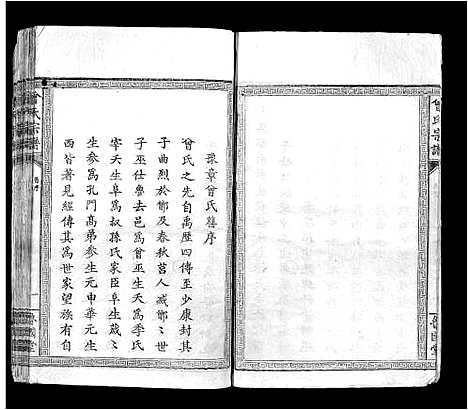 曾氏宗譜
豫章曾氏舊序
曾氏之先自禹歷四傳生少康封其
子曲烈於鄫及春秋莒人滅鄫鄫世
子巫仕魯去邑爲曾巫生夭爲季氏
宰夭生阜爲叔孫氏家臣阜生蒧蒧
生參爲孔門高弟參生元申華元生
西皆著見經傳其爲世家望族有自
曾氏宗譜
舊序
一